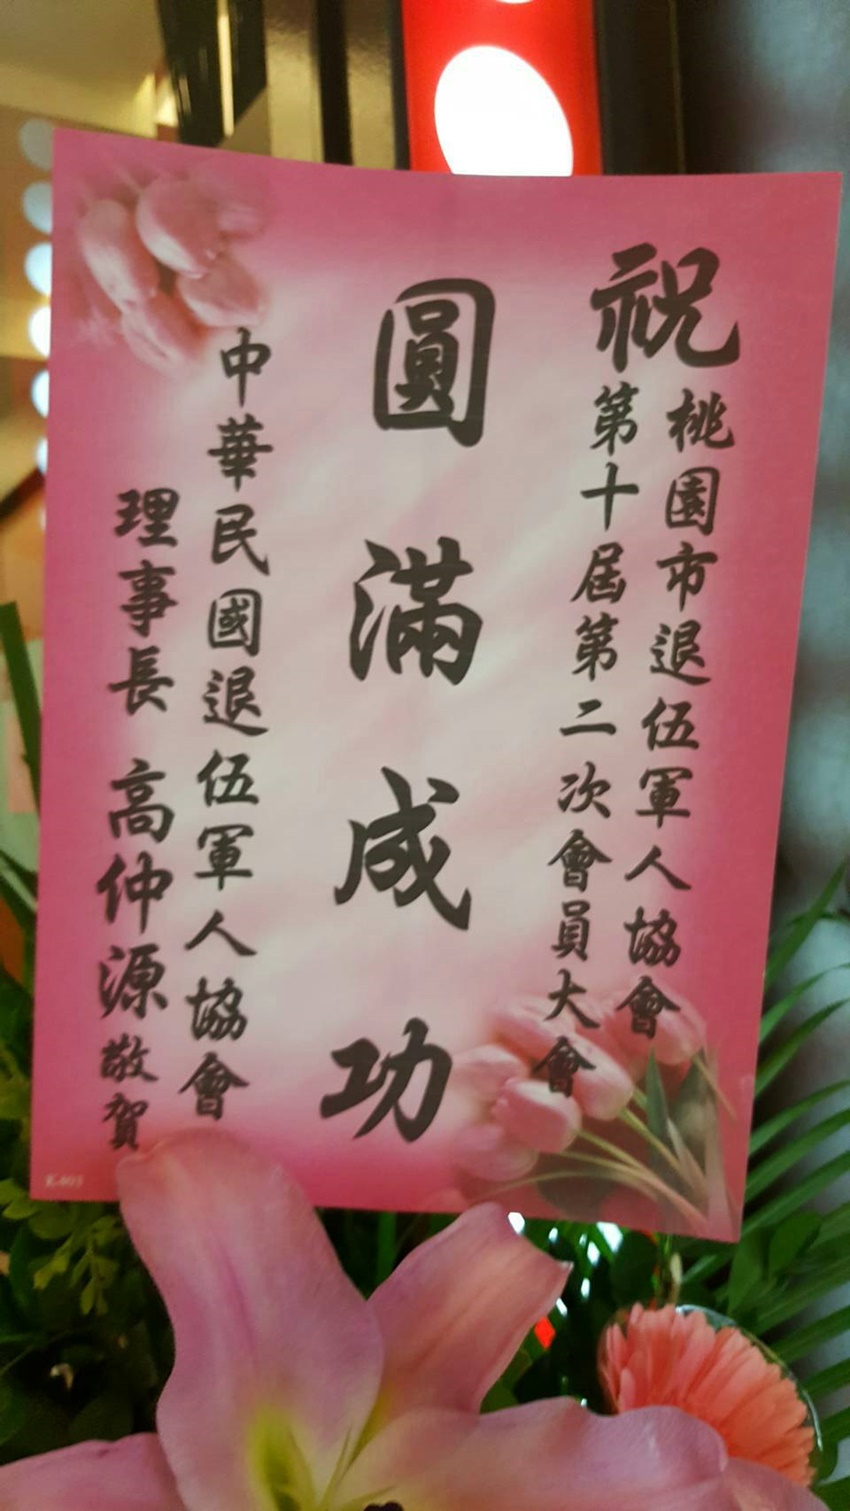 祝
桃園市退伍軍人協會
第十屆第二次會員大會
圓滿成功
中華民國退伍軍人協會
理事長 高仲源 敬賀
K-403